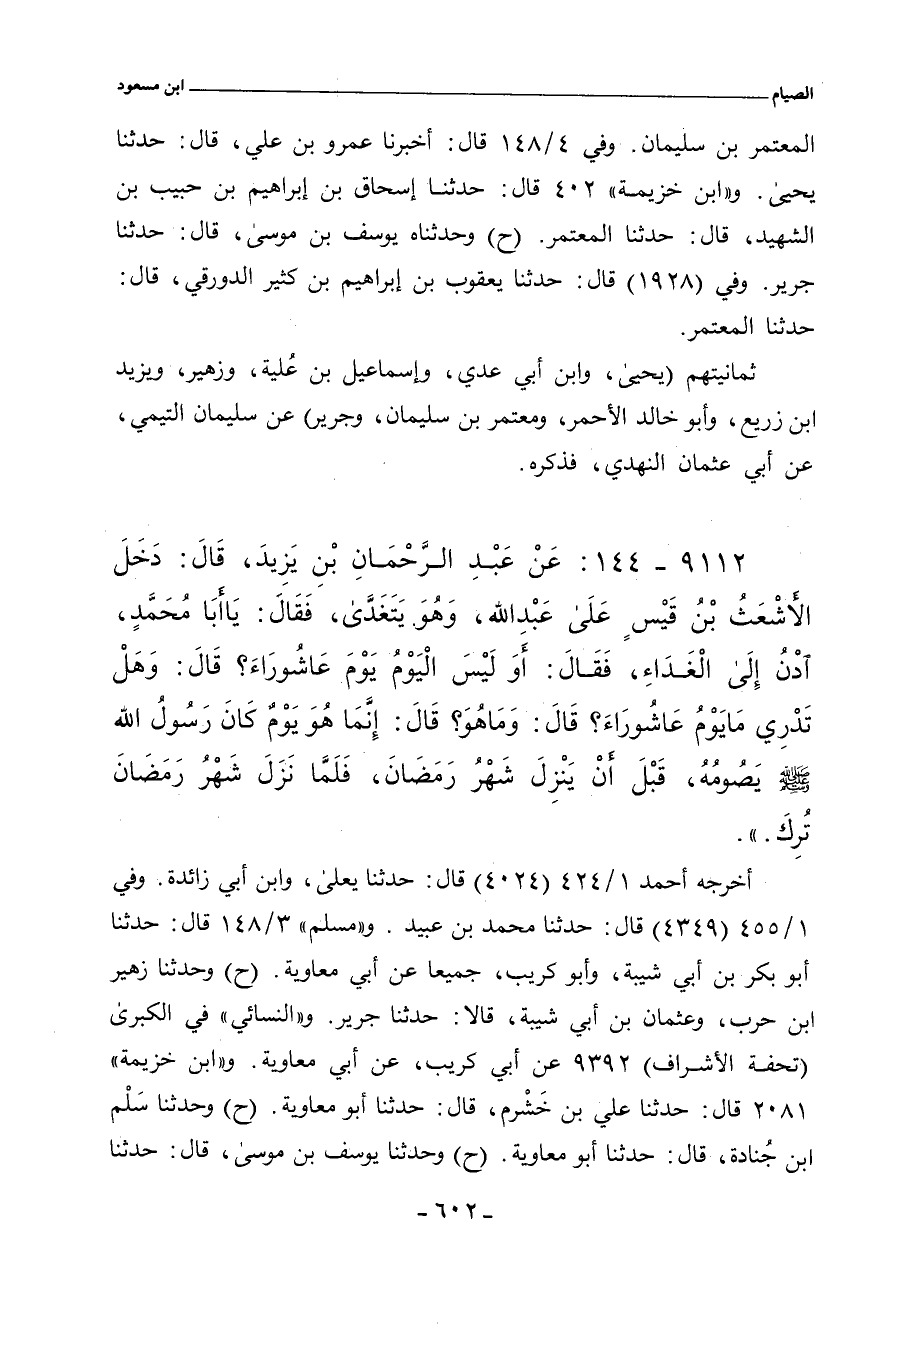 الصيام ــــــــــــــــــــــــــــــــــــــ ابن مسعود
المعتمر بن سليمان. وفي ١٤٨/٤ قال: أخبرنا عمرو بن علي، قال: حدثنا
يحيىٰ. و«ابن خزيمة» ٤٠٢ قال: حدثنا إسحاق بن إبراهيم بن حبيب بن
الشهيد، قال: حدثنا المعتمر. (ح) وحدثناه يوسف بن موسىٰ، قال: حدثنا
جرير. وفي (١٩٢٨) قال: حدثنا يعقوب بن إبراهيم بن كثير الدورقي، قال:
حدثنا المعتمر.
ثمانيتهم (يحيىٰ، وابن أبي عدي، وإسماعيل بن عُلية، وزهير، ويزيد
ابن زريع، وأبو خالد الأحمر، ومعتمر بن سليمان، وجرير) عن سليمان التيمي،
عن أبي عثمان النهدي، فذكره.
٩١١٢ ـ ١٤٤: عَنْ عَبْدِ الرَّحْمَانِ بْنِ يَزِيدَ، قَالَ: دَخَلَ
الأَشْعَثُ بْنُ قَيْسٍ عَلَىٰ عَبْدِالله، وَهُوَ يَتَغَدَّىٰ، فَقَالَ: يَاأَبَا مُحَمَّدٍ،
آدْنُ إِلَىٰ الْغَدَاءِ، فَقَالَ: أَوَ لَيْسَ الْيَوْمُ يَوْمَ عَاشُورَاءَ؟ قَالَ: وَهَلْ
تَدْرِي مَايَوْمُ عَاشُورَاءَ؟ قَالَ: وَمَاهُوَ؟ قَالَ: إِنَّمَا هُوَ يَوْمٌ كَانَ رَسُولُ الله
ﷺ يَصُومُهُ، قَبْلَ أَنْ يَنْزِلَ شَهْرُ رَمَضَانَ، فَلَمَّا نَزَلَ شَهْرُ رَمَضَانَ
تُرِكَ.».
أخرجه أحمد ٤٢٤/١ (٤٠٢٤) قال: حدثنا يعلىٰ، وابن أبي زائدة. وفي
٤٥٥/١ (٤٣٤٩) قال: حدثنا محمد بن عبيد . و«مسلم» ١٤٨/٣ قال: حدثنا
أبو بكر بن أبي شيبة، وأبو كريب، جميعا عن أبي معاوية. (ح) وحدثنا زهير
ابن حرب، وعثمان بن أبي شيبة، قالا: حدثنا جرير. و«النسائي» في الكبرىٰ
(تحفة الأشراف) ٩٣٩٢ عن أبي كريب، عن أبي معاوية. و«ابن خزيمة»
٢٠٨١ قال: حدثنا علي بن خَشْرم، قال: حدثنا أبو معاوية. (ح) وحدثنا سَلْم
ابن جُنادة، قال: حدثنا أبو معاوية. (ح) وحدثنا يوسف بن موسىٰ، قال: حدثنا
ـ ٦٠٢ ـ